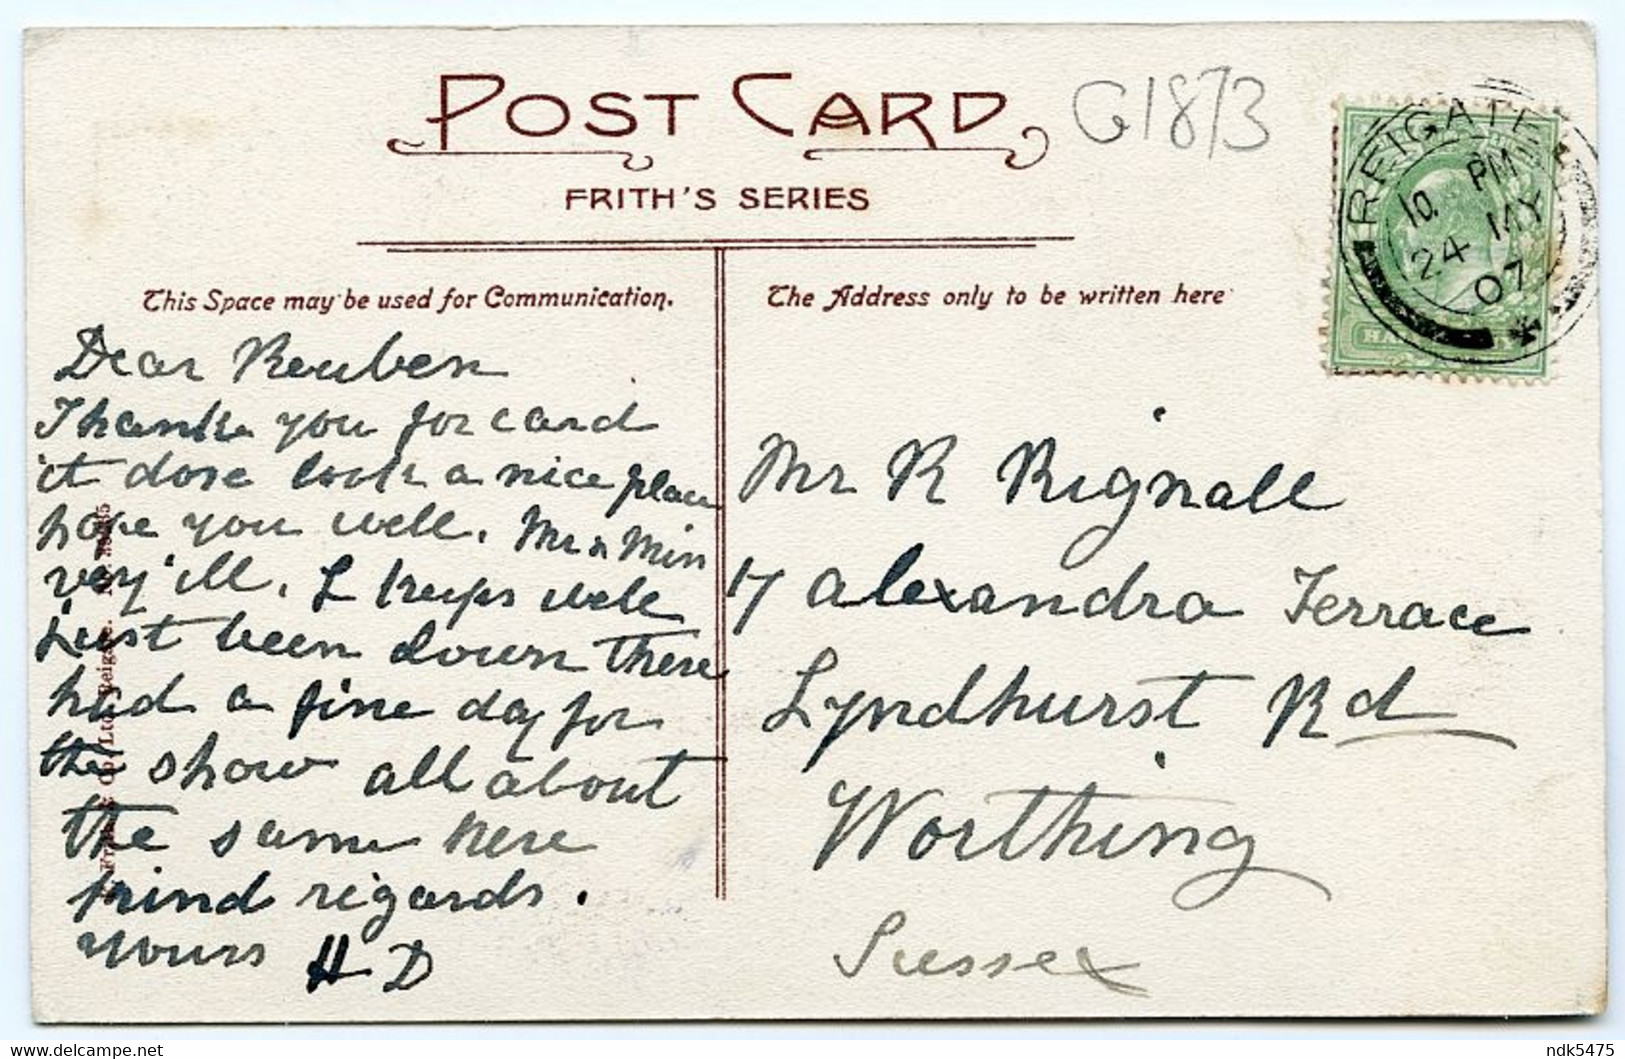 POST CARD
G1873
FRITH'S SERIES
REIGATE
10. PM
24 MY
07
This Space may be used for Communication.
The Address only to be written here
Dear Reuben
Thanks you for card
it dose look a nice place
hope you well. Mr & Miss
very ill. L keeps well
just been down there
had a fine day for
the show all about
the same here
kind regards.
Yours H D
Mr R Rignall
17 Alexandra Terrace
Lyndhurst Rd
Worthing
Sussex
ndk5475